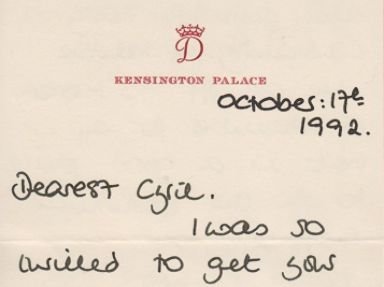 D
KENSINGTON PALACE
October: 17th
1992.
Dearest Cyril.
I was so
thrilled to get your